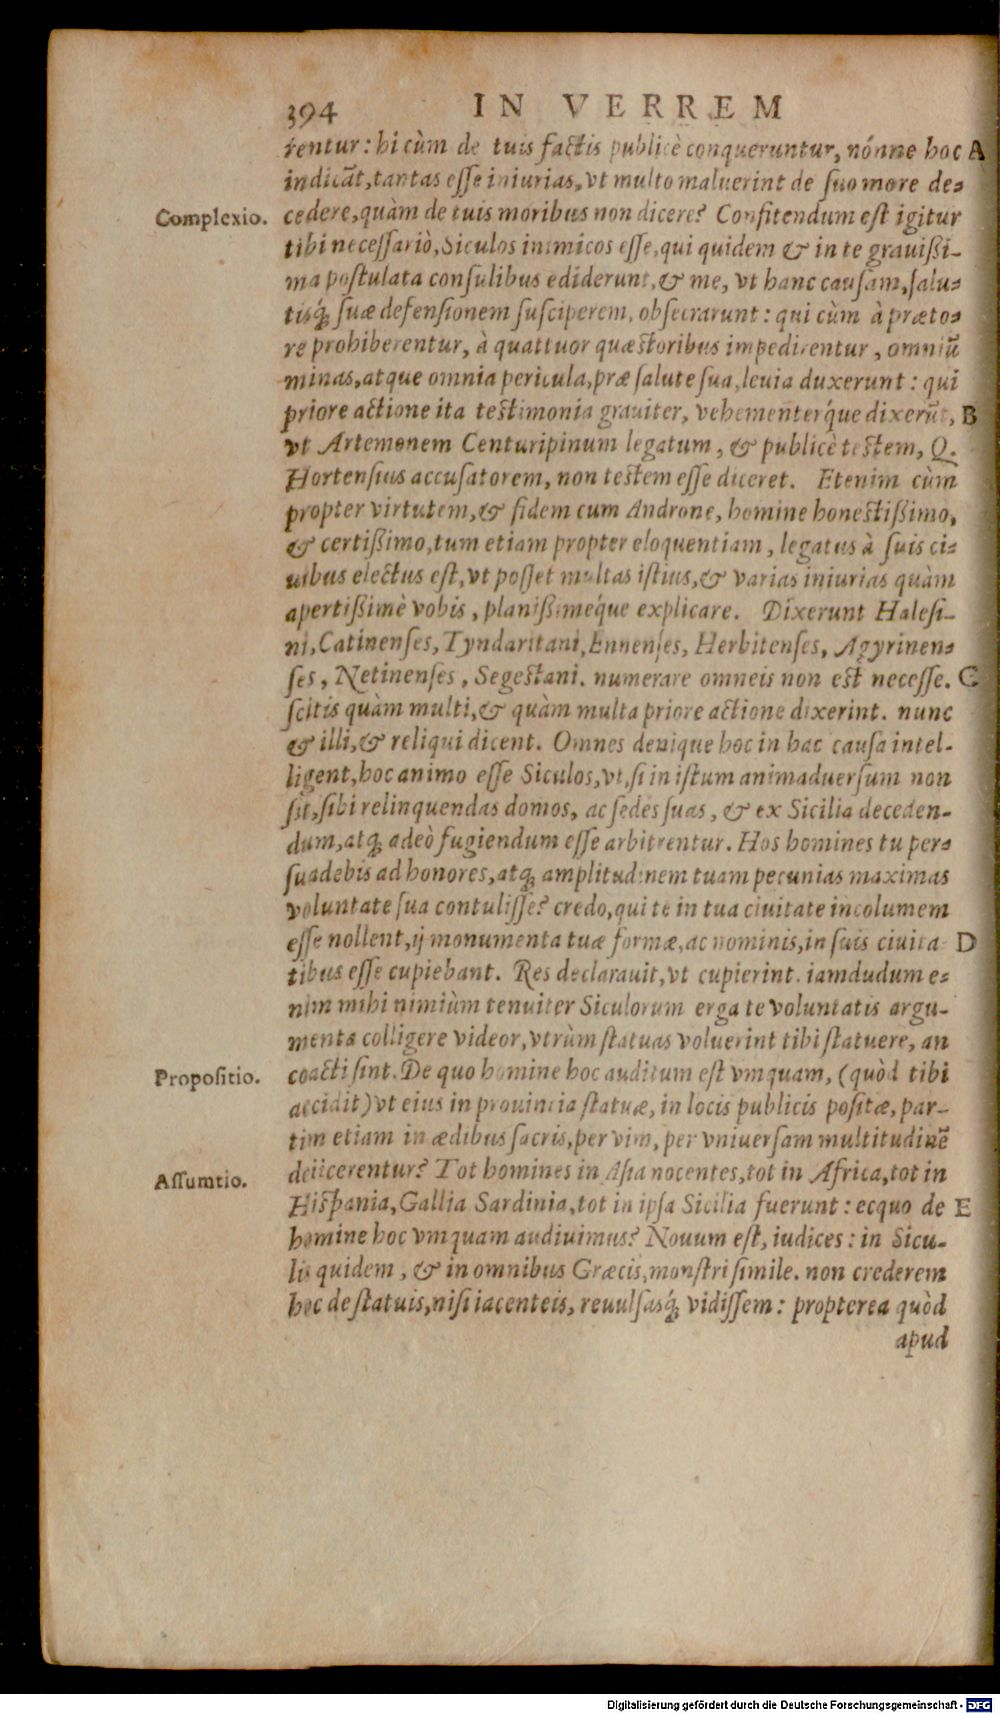 394 IN VERREM
rentur: hi cùm de tuis factis publicè conqueruntur, nónne hoc A
indicāt, tantas esse iniurias, vt multo maluerint de suo more de-
Complexio. cedere, quàm de tuis moribus non dicere? Confitendum est igitur
tibi necessariò, Siculos inimicos esse, qui quidem & in te grauißi-
ma postulata consulibus ediderunt, & me, vt hanc causam, salu-
tisq́; suæ defensionem susciperem, obsecrarunt: qui cùm à præto-
re prohiberentur, à quattuor quæstoribus impedirentur, omniũ
minas, atque omnia pericula, præ salute sua, leuia duxerunt: qui
priore actione ita testimonia grauiter, vehementerq́ue dixerũt, B
vt Artemonem Centuripinum legatum, & publicè testem, Q.
Hortensius accusatorem, non testem esse diceret. Etenim cùm
propter virtutem, & fidem cum Androne, homine honestißimo,
& certißimo, tum etiam propter eloquentiam, legatus à suis ci-
uibus electus est, vt posset multas istius, & varias iniurias quàm
apertißimè vobis, planißimeq́ue explicare. Dixerunt Halesi-
ni, Catinenses, Tyndaritani, Ennenses, Herbitenses, Agyrinen-
ses, Netinenses, Segestani. numerare omneis non est necesse. C
scitis quàm multi, & quàm multa priore actione dixerint. nunc
& illi, & reliqui dicent. Omnes denique hoc in hac causa intel-
ligent, hoc animo esse Siculos, vt, si in istum animaduersum non
sit, sibi relinquendas domos, ac sedes suas, & ex Sicilia deceden-
dum, atq; adeò fugiendum esse arbitrentur. Hos homines tu per-
suadebis ad honores, atq; amplitudinem tuam pecunias maximas
voluntate sua contulisse? credo, qui te in tua ciuitate incolumem
esse nollent, ij monumenta tuæ formæ, ac nominis, in suis ciuita D
tibus esse cupiebant. Res declarauit, vt cupierint. iamdudum e-
nim mihi nimiùm tenuiter Siculorum erga te voluntatis argu-
menta colligere videor, vtrùm statuas voluerint tibi statuere, an
Propositio. coacti sint. De quo homine hoc auditum est vmquam, (quòd tibi
accidit) vt eius in prouincia statuæ, in locis publicis positæ, par-
tim etiam in ædibus sacris, per vim, per vniuersam multitudinẽ
Assumtio. deiicerentur? Tot homines in Asia nocentes, tot in Africa, tot in
Hispania, Gallia Sardinia, tot in ipsa Sicilia fuerunt: ecquo de E
homine hoc vmquam audiuimus? Nouum est, iudices: in Sicu-
lis quidem, & in omnibus Græcis, monstri simile. non crederem
hoc de statuis, nisi iacenteis, reuulsasq́; vidissem: propterea quòd
apud
Digitalisierung gefördert durch die Deutsche Forschungsgemeinschaft - DFG